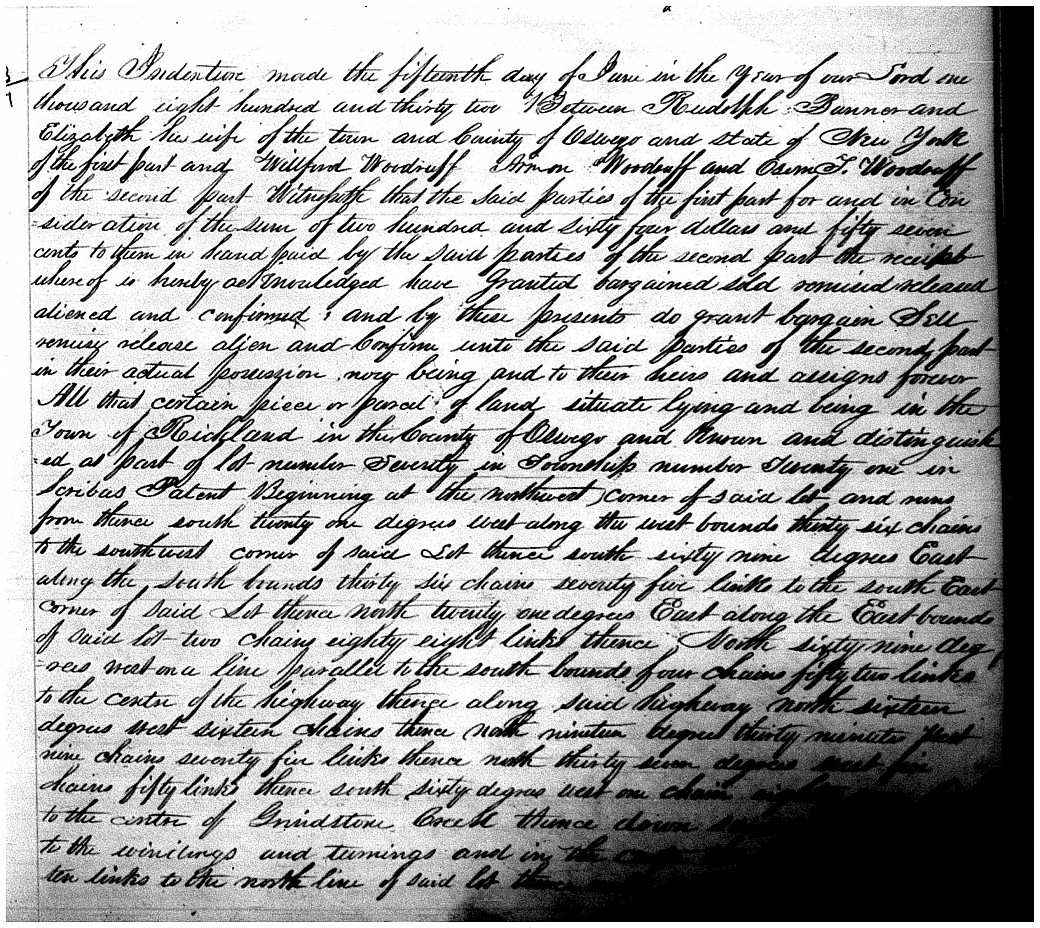 This Indenture made the fifteenth day of June in the Year of our Lord one
thousand eight hundred and thirty two Between Rudolph Bunner and
Elizabeth his wife of the town and County of Oswego and state of New York
of the first part and Willford Woodruff Asmon Woodruff and Osem T. Woodruff
of the second part Witnesseth that the said parties of the first part for and in Con
=sideration of the sum of two hundred and sixty four dollars and fifty seven
cents to them in hand paid by the said parties of the second part the receipt
whereof is hereby acknowledged have Granted bargained sold remised released
aliened and confirmed : and by these presents do grant bargain Sell
remise release alien and Confirm unto the said parties of the second part
in their actual possession now being and to their heirs and assigns forever
All that certain piece or parcel of land situate lying and being in the
Town of Richland in the County of Oswego and known and distinguish
=ed as part of lot number Seventy in Township number Twenty one in
Scribas Patent Beginning at the northwest corner of said lot and runs
from thence south twenty one degrees west along the west bounds thirty six chains
to the southwest corner of said Lot thence south sixty nine degrees East
along the south bounds thirty six chains seventy five links to the south East
corner of said Lot thence north twenty one degrees East along the East bounds
of said lot two chains eighty eight links thence North sixty nine deg
=rees west on a line parallel to the south bounds four chains fifty two links
to the centre of the highway thence along said highway north sixteen
degrees west sixteen chains thence north nineteen degrees thirty minutes West
nine chains seventy five links thence north thirty seven degrees west five
chains fifty links thence south sixty degrees west one chain
to the centre of Grindstone Creek thence down
to the windings and turnings and in the
ten links to the north line of said lot